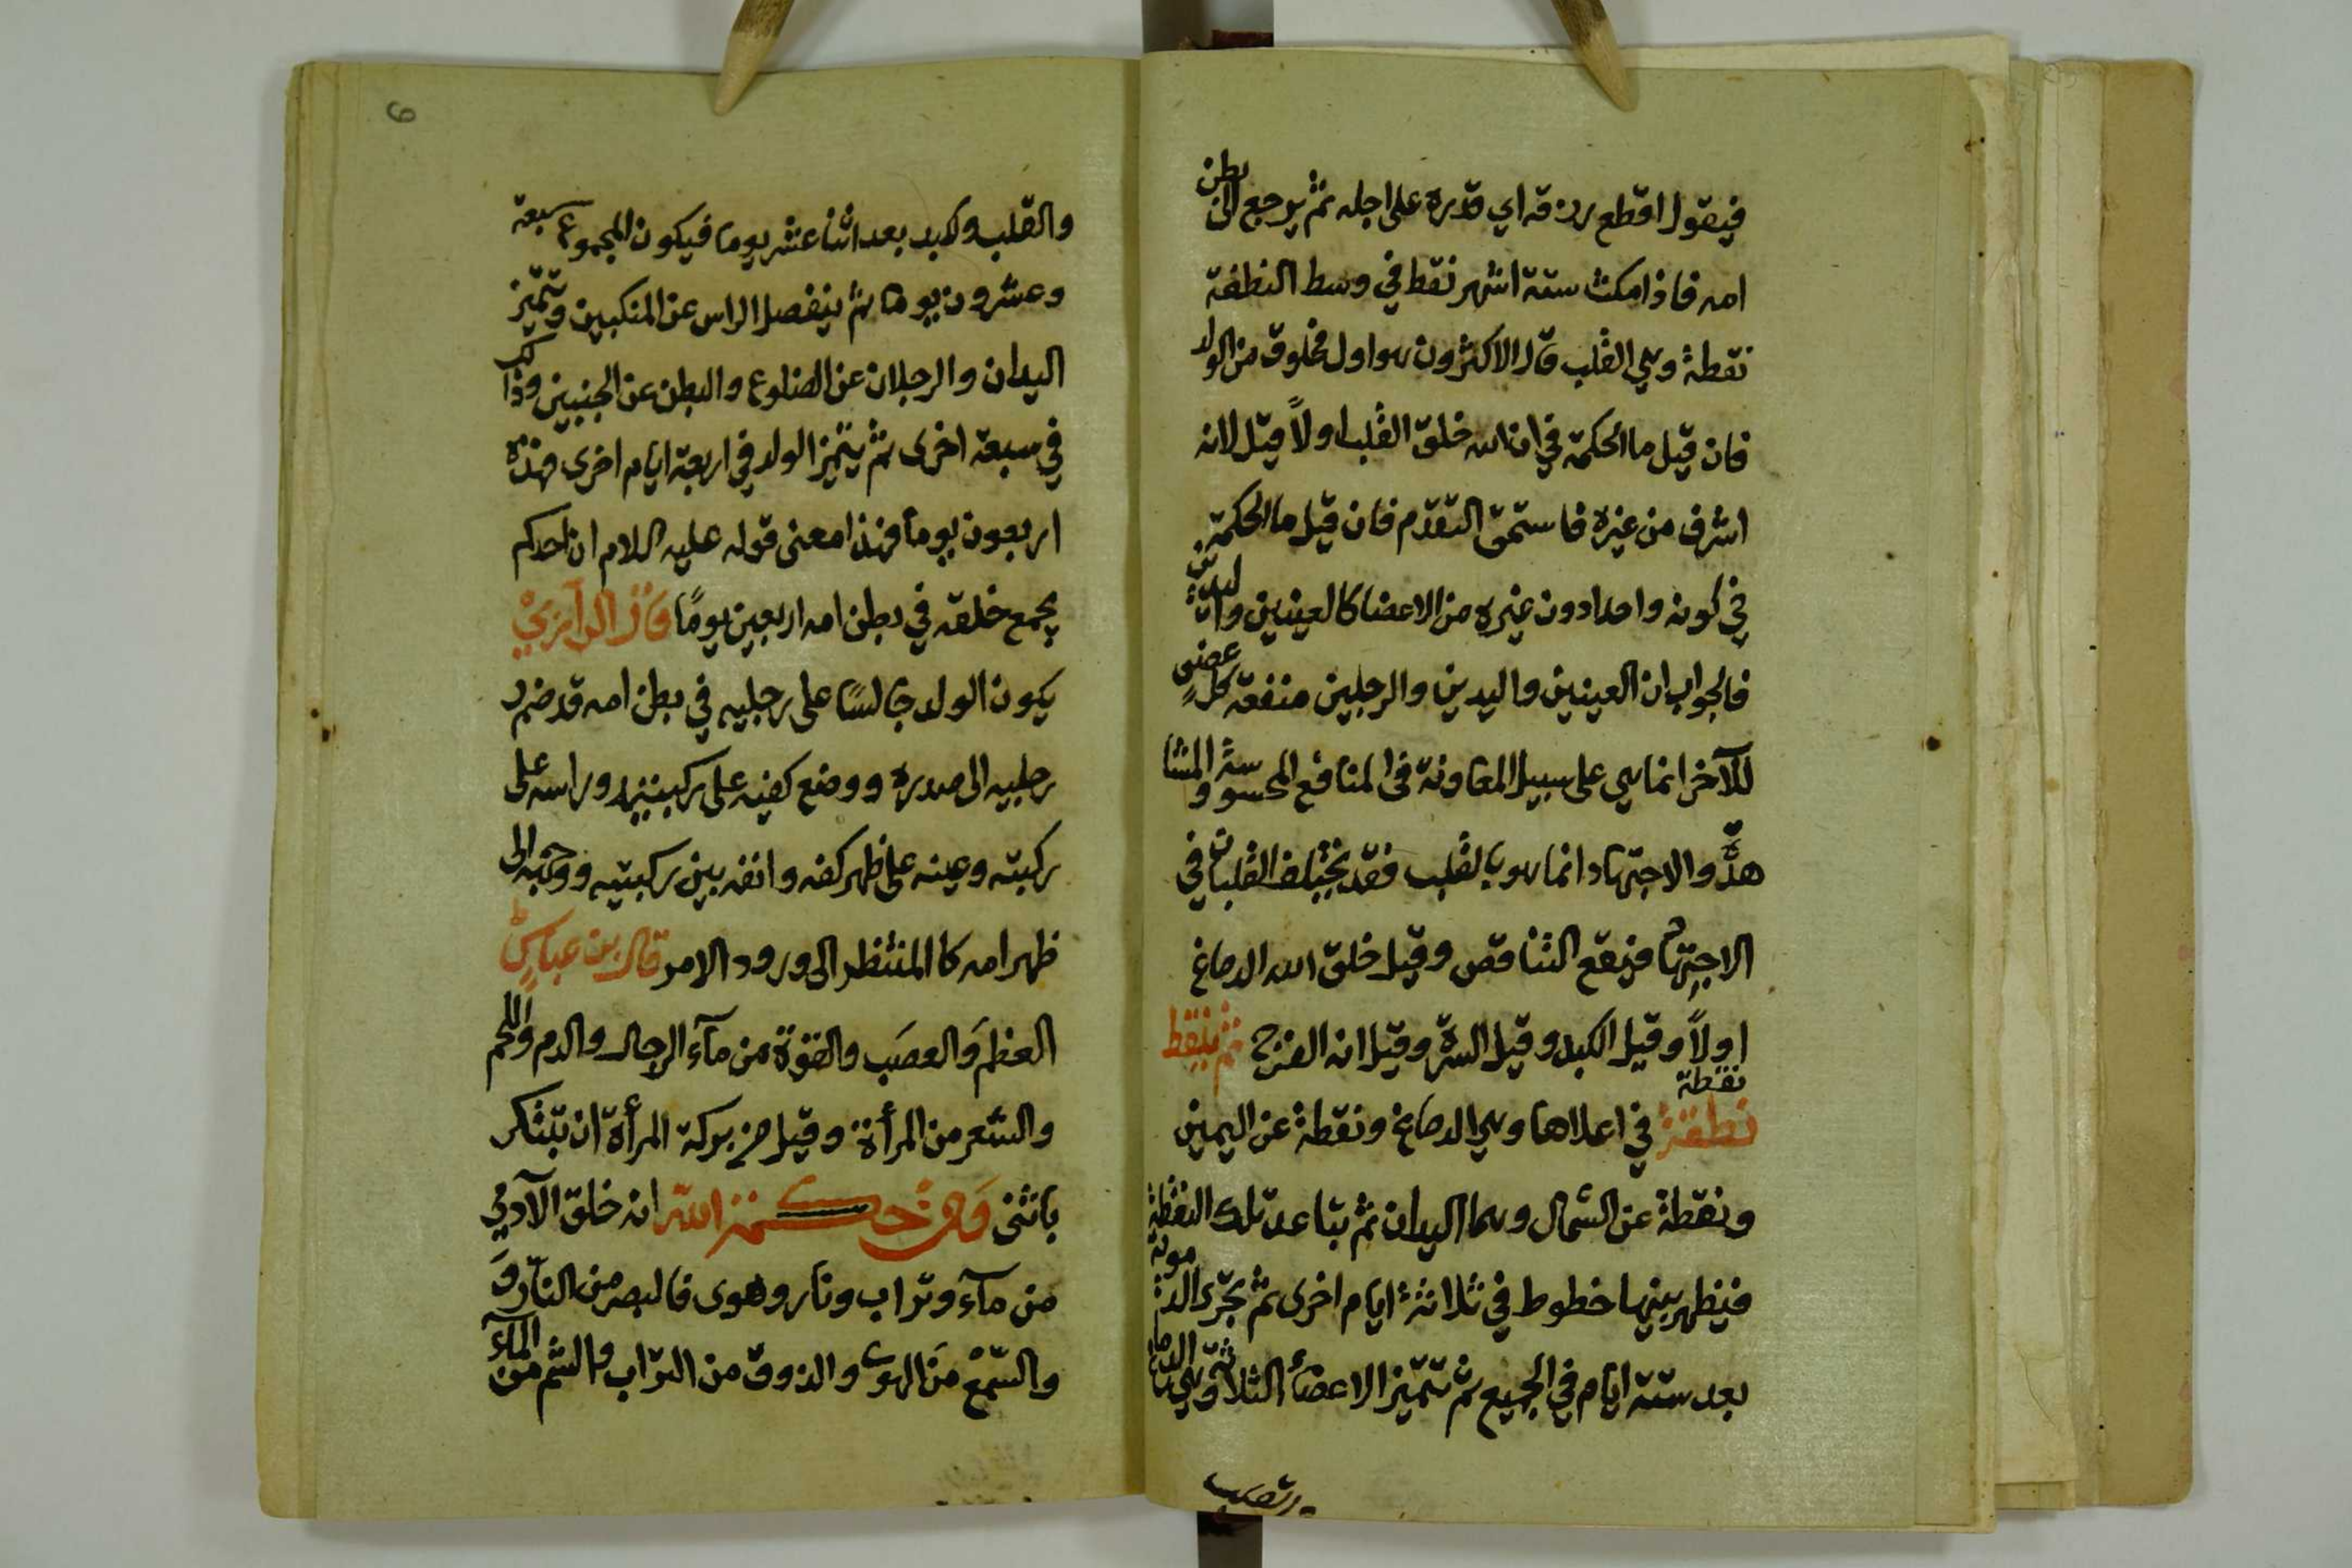 فيقول اقطع رزقه اي قدره على اجله ثم يرجع الى بطن
امه فاذا مكث ستة اشهر نقط في وسط النطفة
نقطة وهي القلب قال الاكثرون هو اول مخلوق من الولد
فان قيل ما الحكمة في ان الله خلق القلب اولاً قيل لانه
اشرف من غيره فاستحق التقدم فان قيل ما الحكمة
في كونه واحدا دون غيره من الاعضا كالعينين واليدين
فالجواب ان العينين واليدين والرجلين منفعة كل عضو
للآخر انما هي على سبيل المعاونة في المنافع المحسوسة والمشا
هدة والاجتهاد انما هو بالقلب فقد يختلف القلبان في
الاجتهاد فيقع التناقص وقيل خلق الله الدماغ
اولاً وقيل الكبد وقيل السرة وقيل انه الفرج ثم ينقط
نطفة نقطة في اعلاها وهي الدماغ ونقطة عن اليمين
ونقطة عن الشمال وهما اليدان ثم يتباعد تلك النقطة
فيظهر بينها خطوط في ثلاثة ايام اخرى ثم تجرى الدموية
بعد ستة ايام في الجميع ثم تتميز الاعضاء الثلاثة وهي الدماغ
والقلب
والقلب وكبد بعد اثنا عشر يوما فيكون المجموع سبعة
وعشرون يوما ثم ينفصل الراس عن المنكبين وتتميز
اليدان والرجلان عن الضلوع والبطن عن الجنبين وذلك
في سبعة اخرى ثم يتميز الولد في اربعة ايام اخرى فهذه
اربعون يوماً فهذا معنى قوله عليه السلام ان احدكم
يجمع خلقه في بطن امه اربعين يومًا قال الرازي
يكون الولد جالسًا على رجليه في بطن امه قد ضم
رجليه الى صدره ووضع كفيه على ركبتيه وراسه على
ركبته وعينه على ظهر كفه وانفه بين ركبتيه ووجهه الى
ظهر امه كالمنتظر الى ورود الامر قال بن عباس
العظم والعصب والقوة من ماء الرجال والدم واللحم
والشعر من المرأة وقيل من بركة المرأة ان تبتكر
بانثى ومن حكمة الله انه خلق الآدمي
من مآء وتراب ونار وهوى فالبصر من النار و
والسمع من الهوى والذوق من التراب والشم من المآء